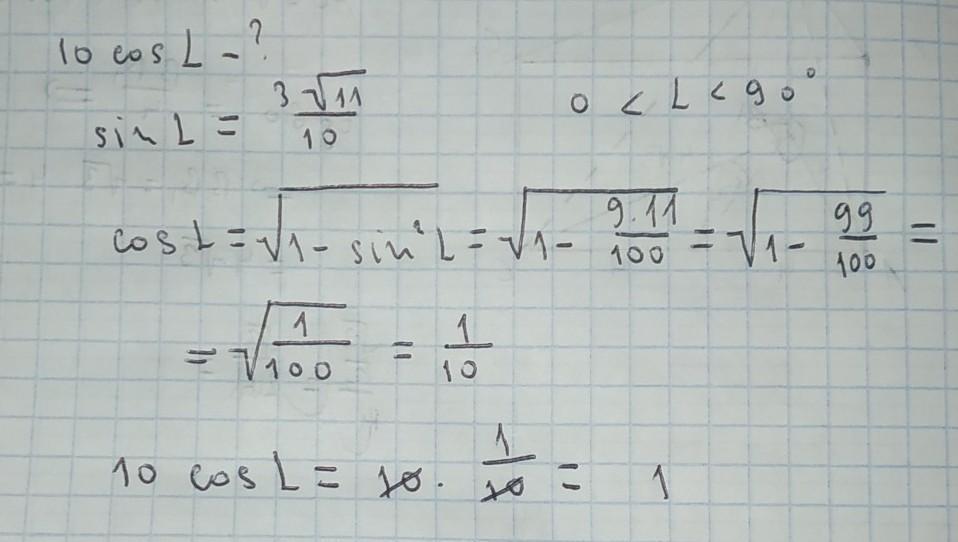 10 cos L - ?
sin L = 3√11/10
0 < L < 90°
cos L = √(1 - sin²L) = √(1 - 9·11/100) = √(1 - 99/100) =
= √(1/100) = 1/10
10 cos L = 10 · 1/10 = 1